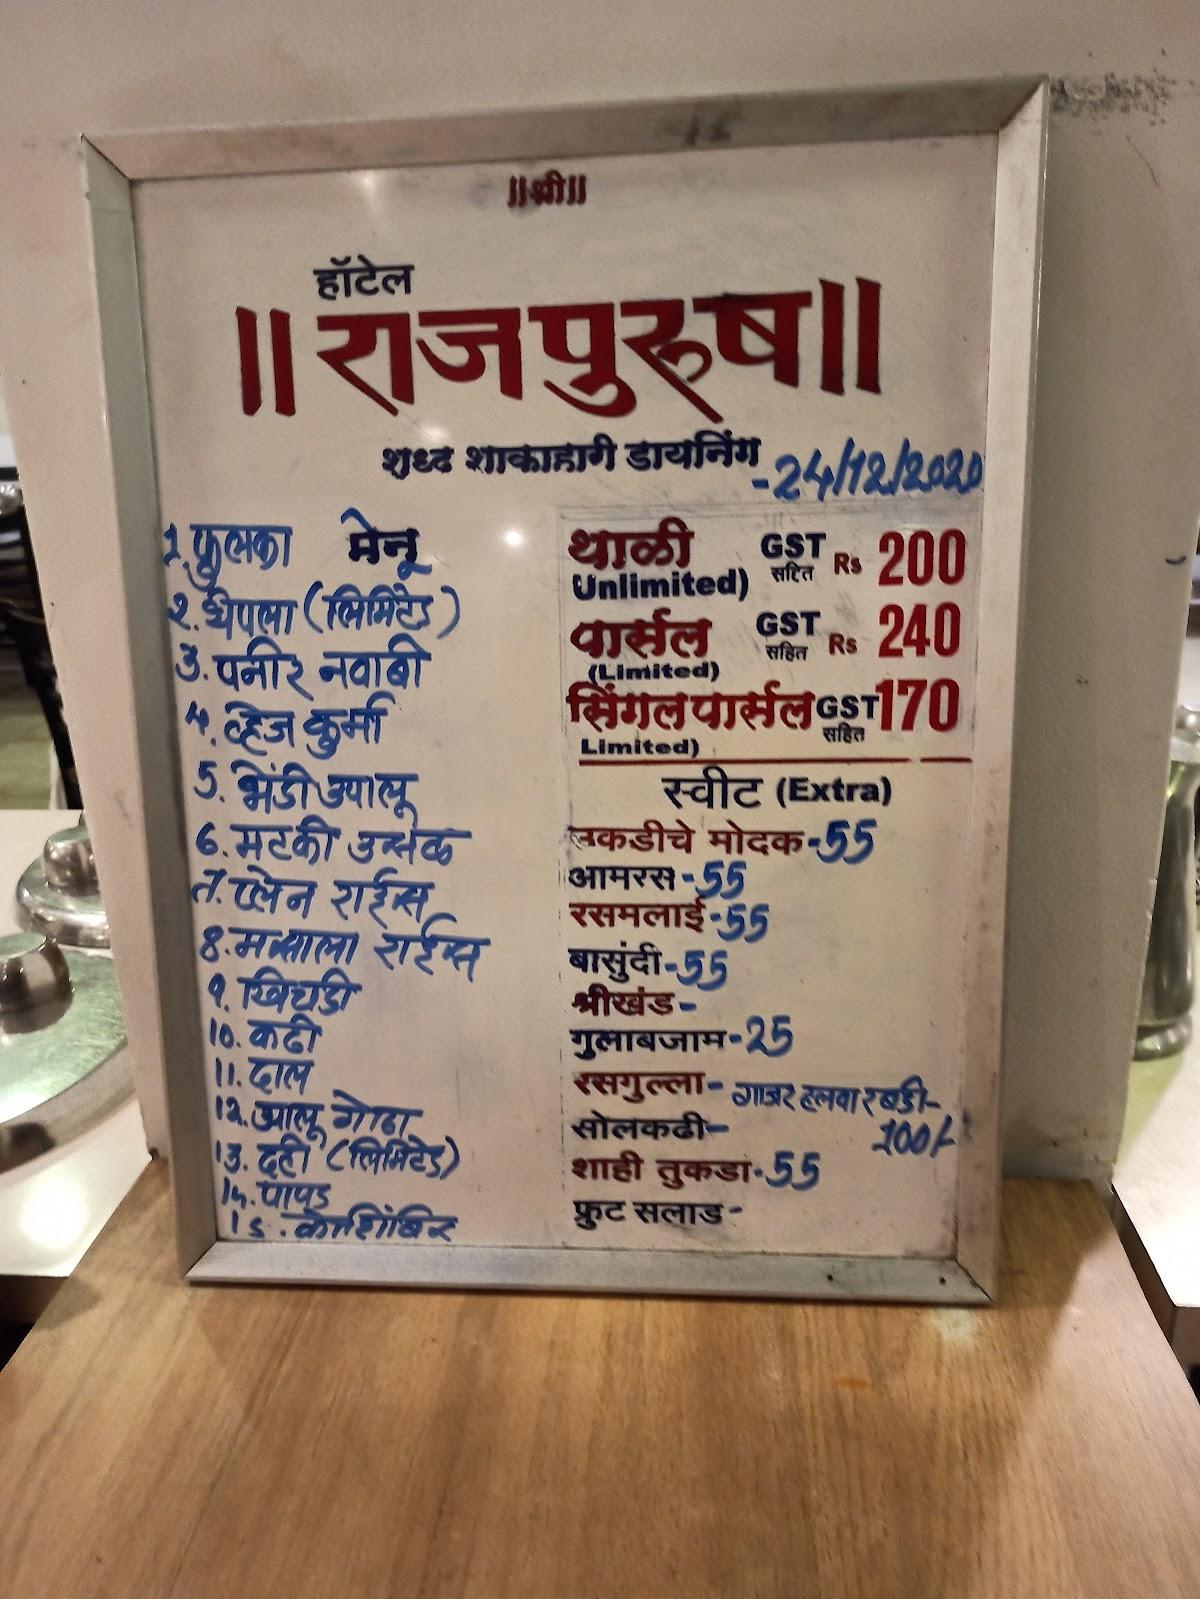 ॥श्री॥
हॉटेल
॥राजपुरुष॥
शुध्द शाकाहारी डायनिंग
-24/12/2020
मेनू
1. फुलका
2. थेपला (लिमिटेड)
3. पनीर नवाबी
4. व्हेज कुर्मा
5. भेंडी आलू
6. मटकी उसळ
7. प्लेन राईस
8. मसाला राईस
9. खिचडी
10. कढी
11. दाल
12. आलू गोटा
13. दही (लिमिटेड)
14. पापड
15. कोशिंबिर
थाळी GST सहित Rs 200
Unlimited)
पार्सल GST सहित Rs 240
(Limited)
सिंगल पार्सल GST सहित 170
Limited)
स्वीट (Extra)
उकडीचे मोदक-55
आमरस-55
रसमलाई-55
बासुंदी-55
श्रीखंड-
गुलाबजाम-25
रसगुल्ला-
गाजर हलवा रबडी-
100/-
सोलकढी-
शाही तुकडा-55
फ्रुट सलाड-